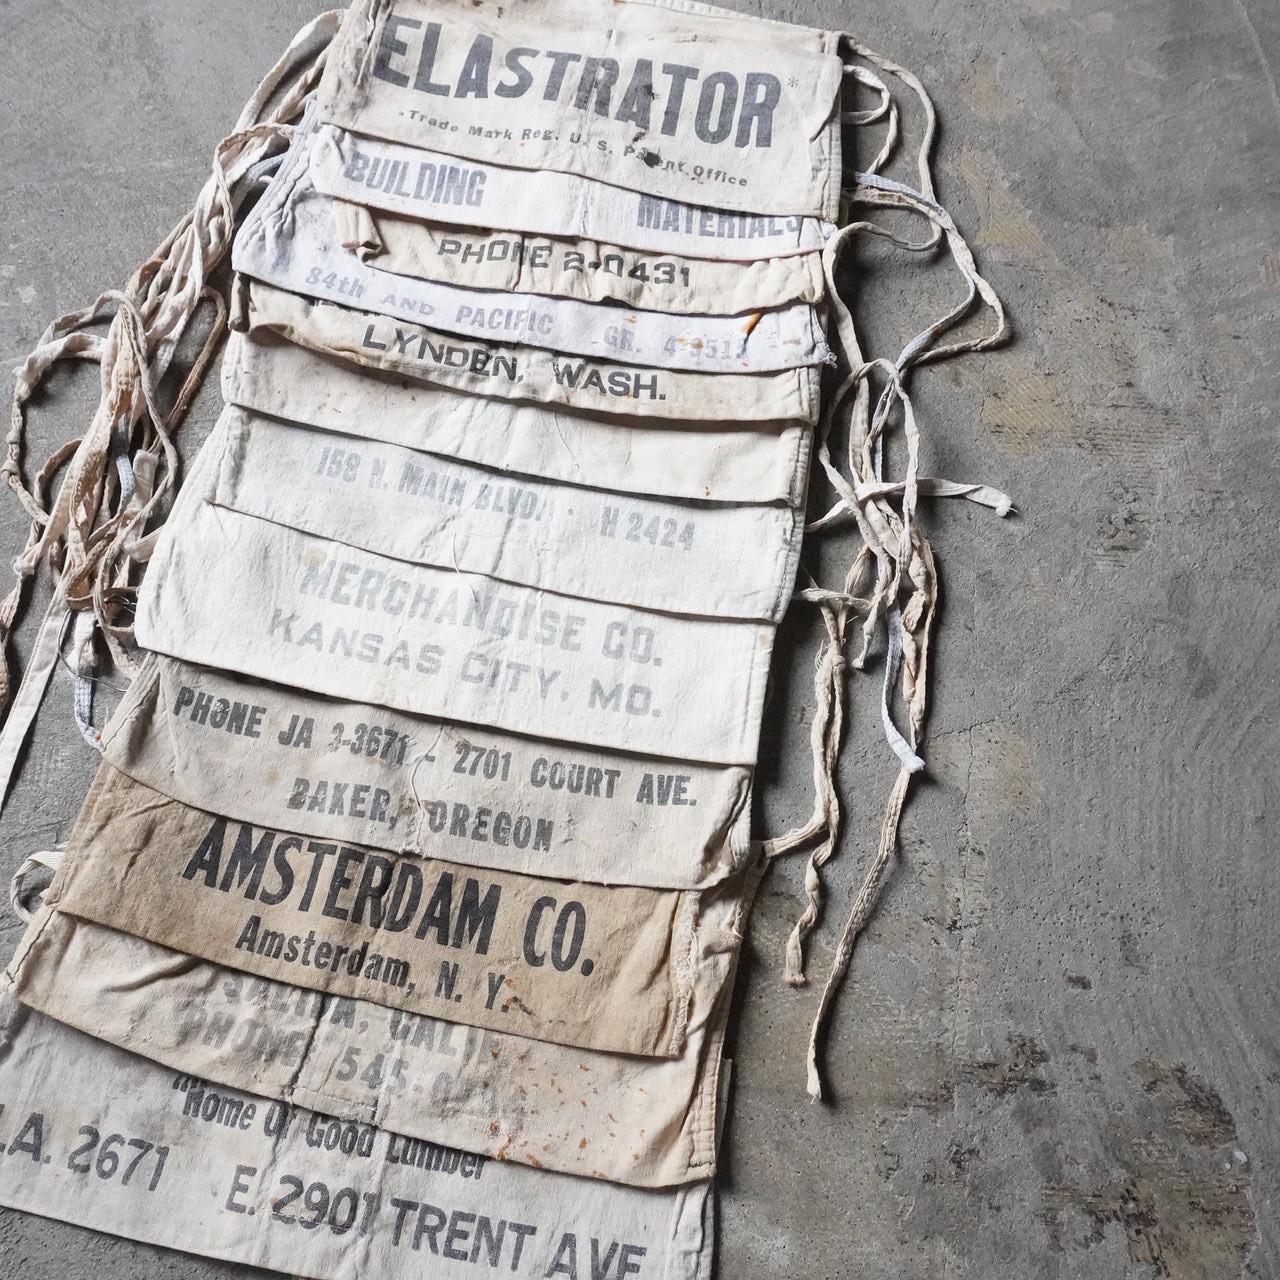 ELASTRATOR*
.Trade Mark Reg. U. S. Patent Office
BUILDING MATERIALS
PHONE 2-0431
84th AND PACIFIC GR. 4-9515
LYNDEN, WASH.
158 N. MAIN BLVD. · H 2424
MERCHANDISE CO.
KANSAS CITY, MO.
PHONE JA 3-3671 - 2701 COURT AVE.
BAKER, OREGON
AMSTERDAM CO.
Amsterdam, N. Y.
PHONE 545-
"Home Of Good Lumber
LA. 2671 E. 2901 TRENT AVE